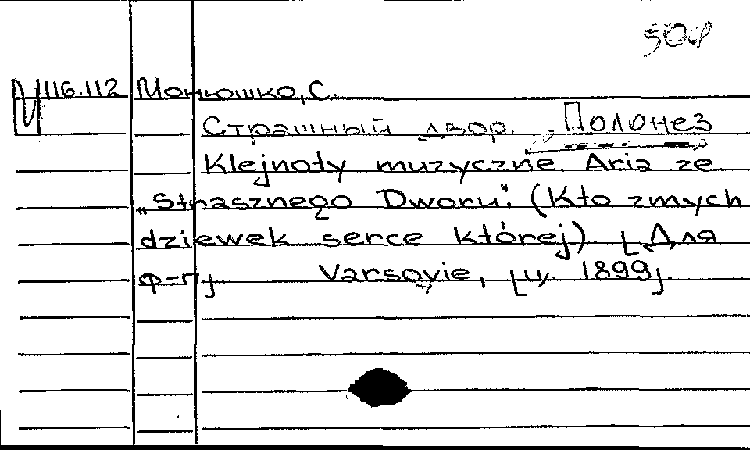 50
116.112 Монюшко, С.
Страшный двор. „Полонез
Klejnoty muzyczne. Aria ze
„Strasznego Dworu". (Kto z mych
dziewek serce której) [Для
ф-п] Varsovie, [ц. 1899].